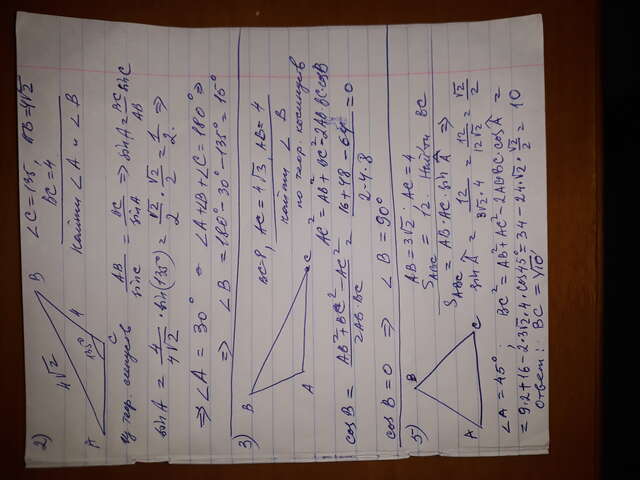 2)
∠C = 135, AB = 4√2
BC = 4
найти ∠A и ∠B
A B C 4√2 4 135°
из теор. синусов AB/sinC = BC/sinA ⇒ sinA = BC/AB sinC
sinA = 4/4√2 · sin(135°) = √2/2 · √2/2 = 1/2. ⇒
⇒ ∠A = 30° ∠A+∠B+∠C = 180° ⇒
⇒ ∠B = 180° - 30° - 135° = 15°
3)
B A C
BC=8, AC = 4√3, AB = 4
найти ∠B
по теор. косинусов
AC² = AB² + BC² - 2AB·BC·cosB
cosB = AB² + BC² - AC² / 2AB·BC = 16 + 48 - 64 / 2·4·8 = 0
cosB = 0 ⇒ ∠B = 90°
5)
A B C
AB = 3√2; AC = 4
S_ABC = 12. Найти BC
S_ABC = AB·AC·sin Â ⇒
sin Â = 12/3√2·4 = 12/12√2 = √2/2
∠A = 45°; BC² = AB² + AC² - 2AB·BC·cos Â =
= 9·2 + 16 - 2·3√2·4·cos45° = 34 - 24·√2·√2/2 = 10
Ответ: BC = √10